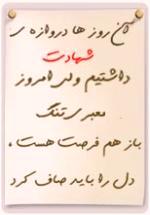 آن روز ها دروازه ی
شهادت
داشتیم ولی امروز
معبری تنگ
باز هم فرصت هست،
دل را باید صاف کرد